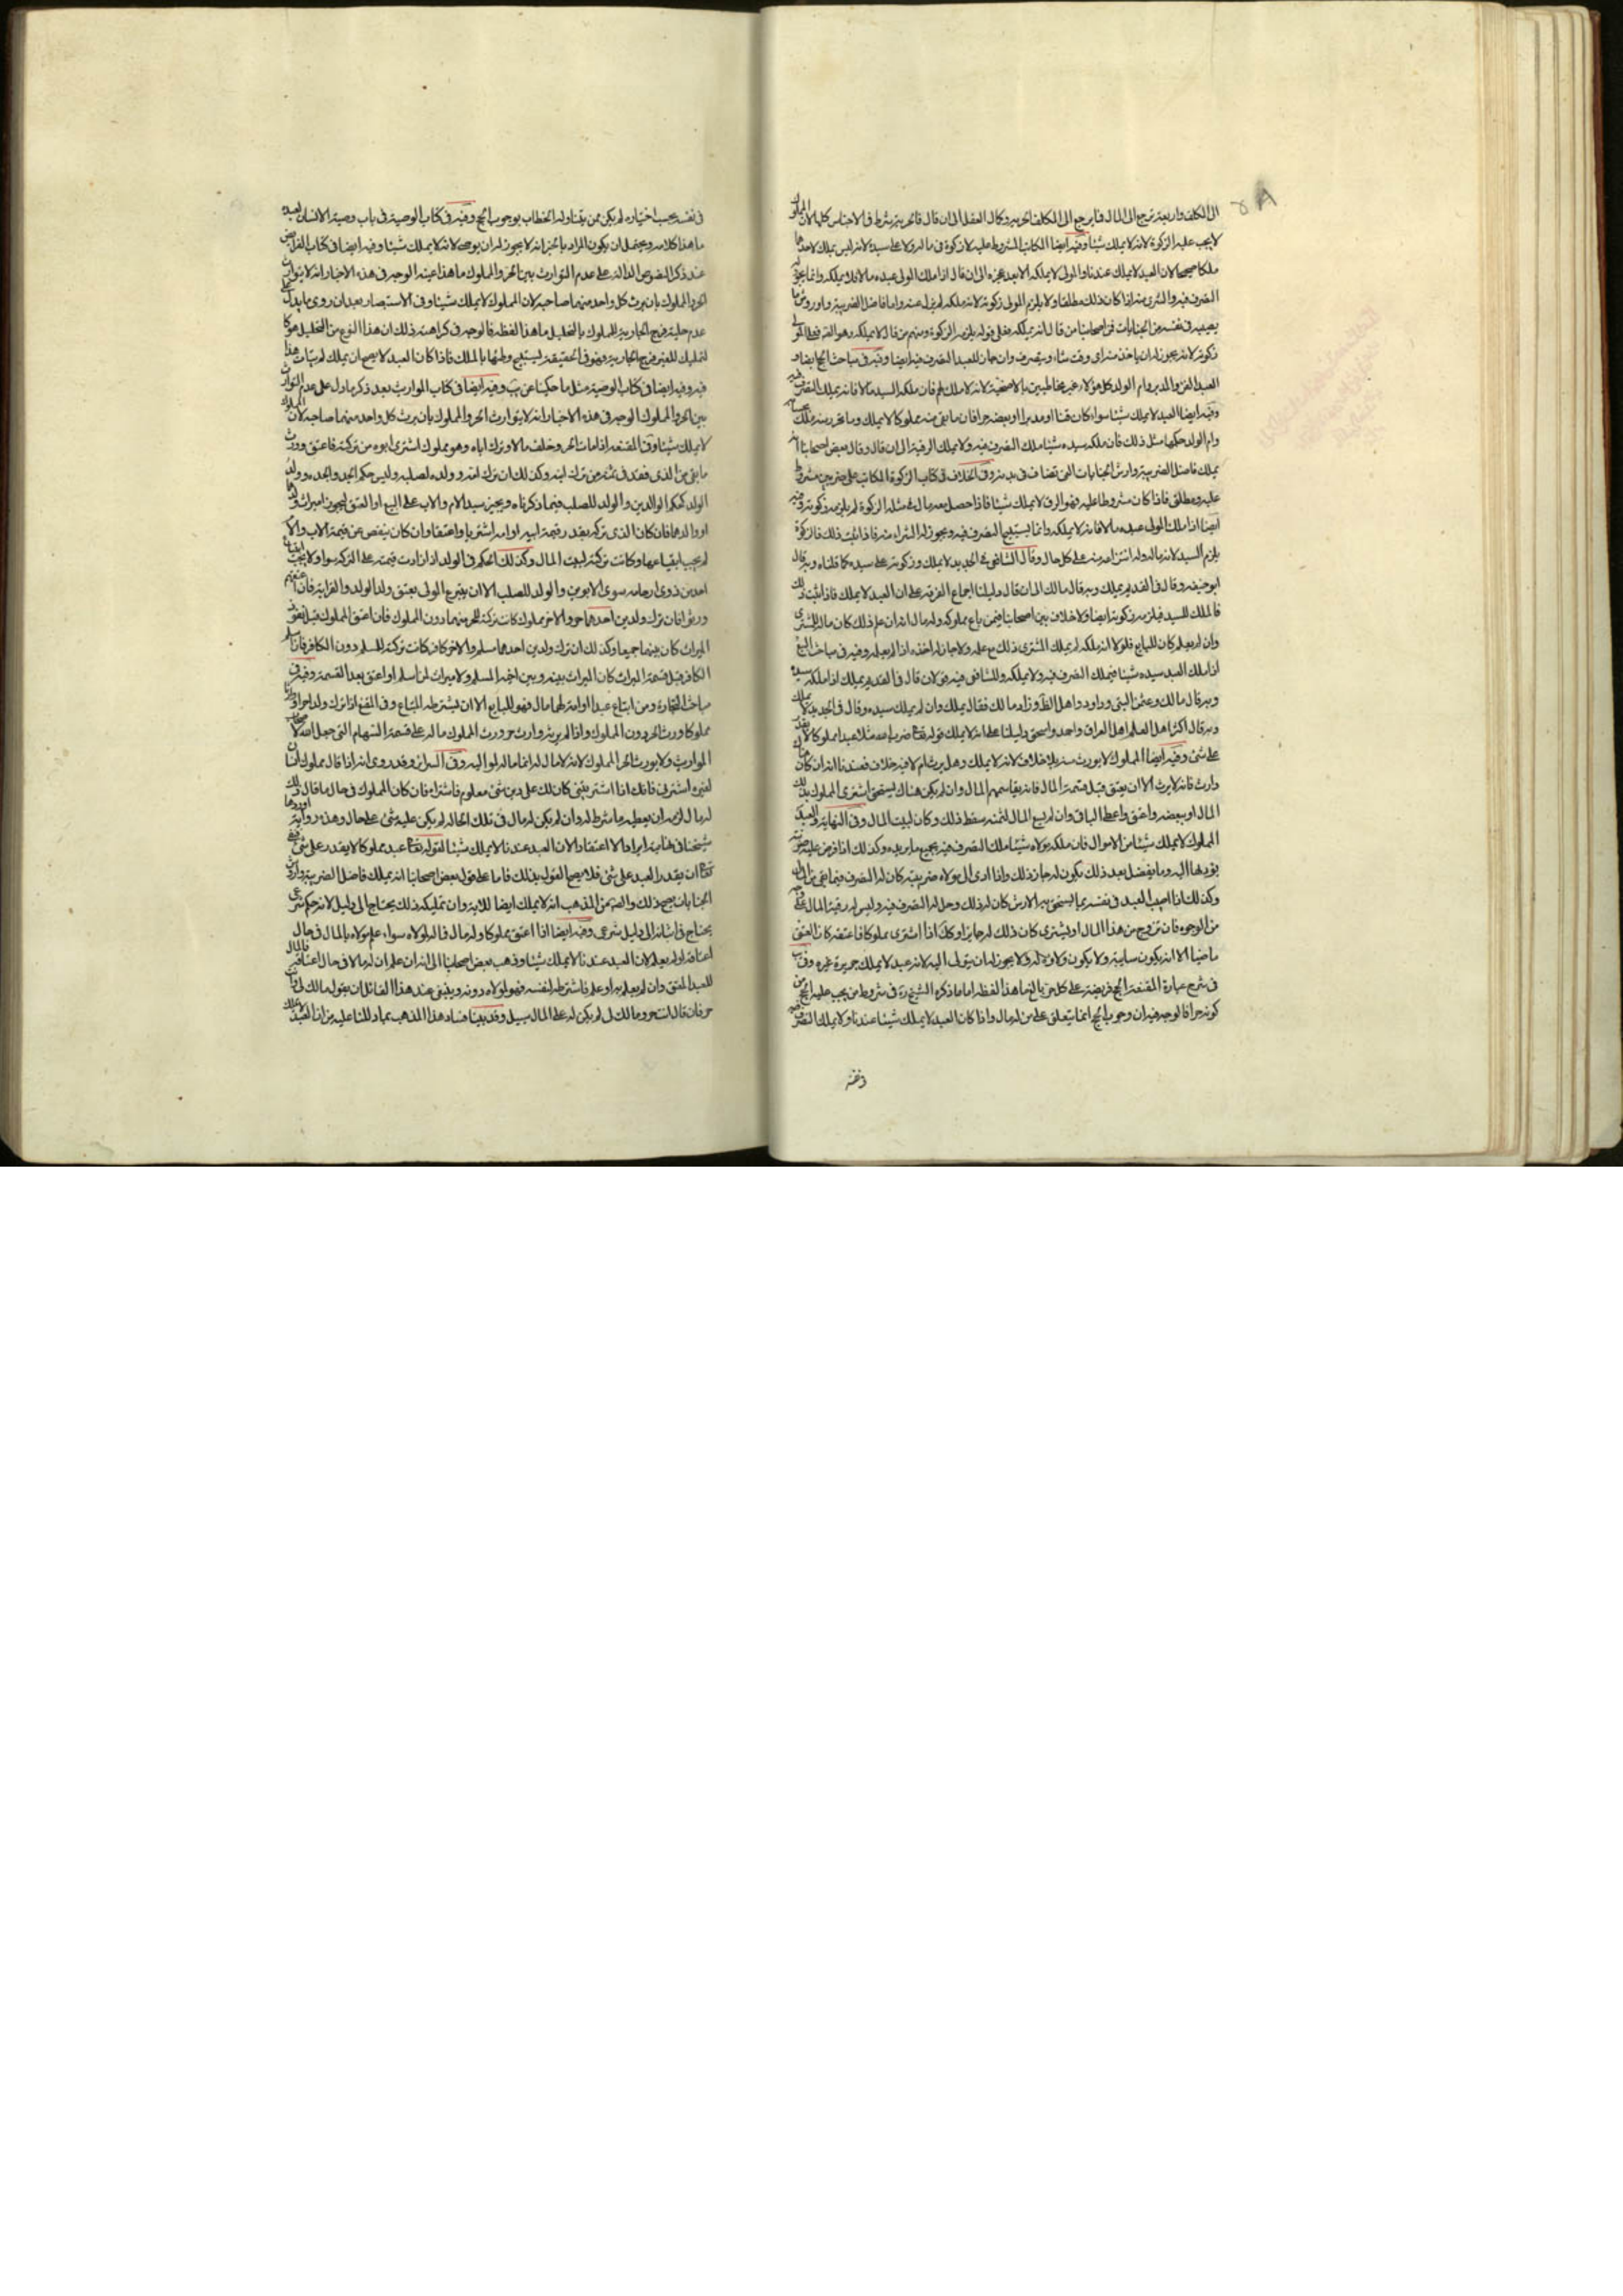 ٥٨
الى المكلف واربعة ترجع الى المال فما يرجع الى المكلف الحرية وكمال العقل الى ان قال فالحرية شرط في الاجناس كلها لان المملوك
لا يجب عليه الزكوة لانه لا يملك شيئا وفيه ايضا المكاتب المشروط عليه لا زكوة في ماله ولا على سيده لانه ليس بملك لاحدهما
ملكا صحيحا لان العبد لا يملك عندنا والمولى لا يملكه الا بعد عجزه الى ان قال اذا ملك المولى عبده مالا فلا يملكه وانما يجوز له
التصرف فيه والشرى منه اذا كان ذلك مطلقا ولا يلزم المولى زكوته لانه ملكه لم يزل عنه واما فاضل الضريبة واروش ما
يصيبه في نفسه من الجنايات فمن اصحابنا من قال انه يملكه فعلى قوله يلزمه الزكوة ومنهم من قال لا يملكه وهو الصحيح فعلى المولى
زكوته لانه يجوز له ان ياخذ منه اى وقت شاء ويتصرف وان جاز للعبد التصرف فيه ايضا وفيه في مباحث الحج ايضا و
العبد القن والمدبر وام الولد كل هؤلاء غير مخاطبين بالاضحية لانه لا ملك لهم فان ملكه السيد مالا فانه يملك التصرف فيه
وفيه ايضا العبد لا يملك شيئا سواء كان قنا او مدبرا او بعضه حرا فان ما بقى منه مملوكا لا يملك وما تحرر منه يملك
وام الولد حكمها مثل ذلك فان ملكه سيده شيئا ملك التصرف فيه ولا يملك الرقبة الى ان قال وقال بعض اصحابنا انه
يملك فاضل الضريبة وارش الجنايات التى تضاف في بدنه وفي الخلاف في كتاب الزكوة المكاتب على ضربين مشروط
عليه ومطلق فاذا كان مشروطا عليه فهو الرق لا يملك شيئا فاذا حصل معه مال في مثله الزكوة لم يلزمه زكوته وفيه
ايضا اذا ملك المولى عبده مالا فانه لا يملكه وانما يستبيح التصرف فيه ويجوز له الشراء منه فاذا ثبت ذلك فالزكوة
يلزم السيد لانه ماله وله انتزاعه منه على كل حال وقال الشافعى في الجديد لا يملك وزكوته على سيده كما قلناه وبه قال
ابو حنيفة وقال في القديم يملك وبه قال مالك الى ان قال دليلنا اجماع الفرقة على ان العبد لا يملك فاذا ثبت ذلك
فالملك للسيد فيلزمه زكوته ايضا ولا خلاف بين اصحابنا فيمن باع مملوكه وله مال انه ان علم ذلك كان ماله للمشترى
وان لم يعلم كان للبايع فلو لا انه ملكه لم يملك المشترى ذلك مع علمه ولا جاز له اخذه اذا لم يعلم وفيه في مباحث البيع
اذا ملك العبد سيده شيئا فيملك التصرف فيه ولا يملكه وللشافعى فيه قولان قال في القديم يملك اذا ملكه سيده
وبه قال مالك وعثمن البتى وداود واهل الظاهر وزاد مالك فقال يملك وان لم يملك سيده وقال في الجديد لا يملك
وبه قال اكثر اهل العلم اهل العراق واحمد واسحق دليلنا على انه لا يملك قوله تعالى ضرب الله مثلا عبدا مملوكا لا يقدر
على شئ وفيه ايضا المملوك لا يورث منه بلا خلاف لانه لا يملك وهل يرث ام لا فيه خلاف فعندنا انه ان كان هناك
وارث فانه لا يرث الا ان يعتق قبل قسمة المال فانه يقاسمهم المال وان لم يكن هناك يستحق اشترى المملوك بذلك
المال او ببعضه واعتق واعطى الباقى وان لم يسع المال لثمنه سقط ذلك وكان لبيت المال وفي النهاية والعبد
المملوك لا يملك شيئا من الاموال فان ملكه مولاه شيئا ملك التصرف فيه بجميع ما يريده وكذلك اذا فرض عليه ضريبة
يؤديها اليه وما يفضل بعد ذلك يكون له جاز ذلك واذا ادى الى مولاه ضريبته كان له التصرف فيما بقى من المال
وكذلك اذا اصيب العبد في نفسه بما يستحق به الارش كان له ذلك وحل له التصرف فيه وليس له رقبة المال على وجه
من الوجوه فان تزوج من هذا المال او يشترى كان ذلك له جايزا وكذا اذا اشترى مملوكا فاعتقه كان العتق
ماضيا الا انه يكون سايبة ولا يكون ولاؤه له ولا يجوز له ان يتولى اليه لانه عبد لا يملك جريرة غيره وفي يب
في شرح عبارة المقنعة الحج فريضة على كل حر بالغ ما هذا لفظه اما ما ذكره الشيخ ره في شروط من يجب عليه الحج من
كونه حرا فالوجه فيه ان وجوب الحج انما يتعلق على من له مال واذا كان العبد لا يملك شيئا عندنا ولا يملك التصرف
في نفسه
في نفسه بحسب اختياره لم يكن ممن يتناوله الخطاب بوجوب الحج وفيه في كتاب الوصية في باب وصية الانسان لعبده
ما هذا كلامه ويحتمل ان يكون المراد بالخبر انه لا يجوز له ان يوصى لانه لا يملك شيئا وفيه ايضا في كتاب الفرائض
عند ذكر النصوص الدالة على عدم التوارث بين الحر والمملوك ما هذا عينه الوجه في هذه الاخبار انه لا يتوارث
الحر والمملوك بان يرث كل واحد منهما صاحبه لان المملوك لا يملك شيئا وفي الاستبصار بعد ان روى ما يدل على
عدم حلية فرج الجارية للمملوك بالتحليل ما هذا لفظه فالوجه في كراهته ذلك ان هذا النوع من التحليل هو كا
لتمليك للغير فرج الجارية وهو في الحقيقة يستبيح وطئها بالملك فاذا كان العبد لا يصح ان يملك لم يتات هذا
فيه وفيه ايضا في كتاب الوصية مثل ما حكيناه عن يب وفيه ايضا في كتاب المواريث بعد ذكر ما دل على عدم التوارث
بين الحر والمملوك الوجه في هذه الاخبار انه لا يتوارث الحر والمملوك بان يرث كل واحد منهما صاحبه لان المملوك
لا يملك شيئا وفي المقنعة اذا مات الحر وخلف مالا وترك اباه وهو مملوك اشترى ابوه من تركته فاعتق وورث
ما بقى من الذى فقد في ثمنه من ترك ابنه وكذلك ان ترك امه وولده لصلبه وليس حكم الجد والجدة وولد
الولد كحكم الوالدين والولد للصلب فيما ذكرناه ويجبر سيد الام والاب على البيع او العتق ليحوزا ميراث ولدهما
او والدهما فان كان الذى تركه بقدر قيمة ابيه او امه اشتريا واعتقا وان كان ينقص عن قيمة الاب والام
لم يجب ابتياعهما وكانت تركته لبيت المال وكذلك الحكم في الولد اذا زادت قيمته على التركة سواء ولا يجب ابتياع
احد من ذوى ارحامه سوى الابوين والولد للصلب الا ان يتبرع المولى بعتق ولد الولد والقرابة فان اعتقهم
ورثوا فان ترك ولدين احدهما حر والاخر مملوك كانت تركته للحر منهما دون المملوك فان اعتق المملوك قبل تفرق
الميراث كان بينهما جميعا وكذلك ان ترك ولدين احدهما مسلم والاخر كافر كانت تركته للمسلم دون الكافر فان اسلم
الكافر قبل قسمة الميراث كان الميراث بينه وبين اخيه المسلم ولا ميراث لمن اسلم او اعتق بعد القسمة وفيه في
مباحث التجارة ومن ابتاع عبدا او امة لهما مال فهو للبايع الا ان يشترطه المبتاع وفي المقنع اذا ترك ولدا حرا وولدا
مملوكا ورث الحر دون المملوك واذا لم يرثه وارث حر ورث المملوك ماله على قسمة السهام التى جعل الله لاصحاب
المواريث ولا يورث الحر المملوك لانه لا مال له انما ماله لمواليه وفي السرائر وقد روى انه اذا قال مملوك انسان
لغيره اشترنى فانك اذا اشتريتنى كان لك على دين شئ معلوم فاشتراه فان كان المملوك في حال ما قال ذلك
له مال لزمه ان يعطيه ما شرط له وان لم يكن له مال في تلك الحالة لم يكن عليه شئ على حال وهذه رواية اوردها
شيخنا في نهايته ايرادا لا اعتقادا لان العبد عندنا لا يملك شيئا لقوله تعالى عبدا مملوكا لا يقدر على شئ
تعالى ان يقدر العبد على شئ فلا يصح القول بذلك فاما على قول بعض اصحابنا انه يملك فاضل الضريبة وارش
الجنايات يصح ذلك والصحيح من المذهب انه لا يملك ايضا للاية وان تمليكه ذلك يحتاج الى دليل لانه حكم شرعى
يحتاج في اثباته الى دليل شرعى وفيه ايضا اذا اعتق مملوكا وله مال فماله لمولاه سواء علم مولاه بالمال في حال
اعتاقه او لم يعلم لان العبد عندنا لا يملك شيئا وذهب بعض اصحابنا الى انه ان علم ان له مالا في حال اعتاقه فالمال
للعبد المعتق وان لم يعلم به او علم فاشترطه لنفسه فهو لمولاه دونه وينبغى عند هذا القائل ان يقول مالك لى وانت
حر فان قال انت حر ومالك لى لم يكن له على المال سبيل وقد بينا فساد هذا المذهب بما دللنا عليه من ان العبد لا يملك